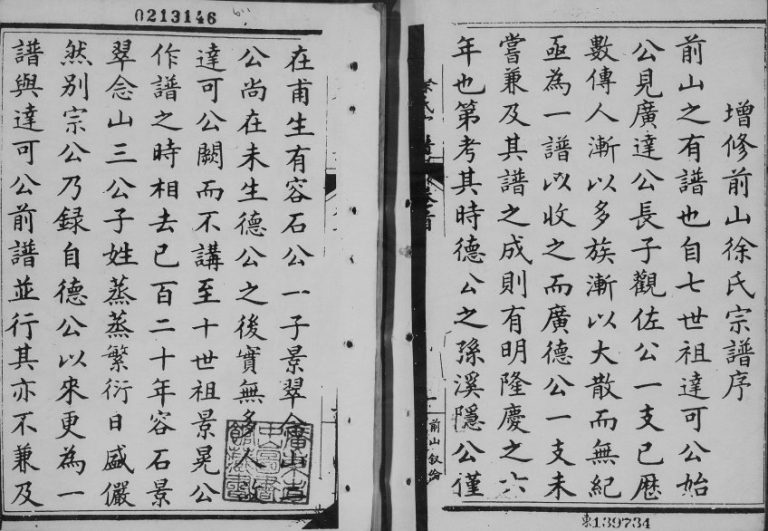 0213146
增修前山徐氏宗譜序
前山之有譜也自七世祖達可公始
公見廣達公長子觀佐公一支已歷
數傳人漸以多族漸以大散而無紀
亟為一譜以收之而廣德公一支未
嘗兼及其譜之成則有明隆慶之六
年也第考其時德公之孫溪隱公僅
前山叙倫
在甫生有容石公一子景翠
公尚在未生德公之後實無多人
達可公闕而不講至十世祖景晃公
作譜之時相去已百二十年容石景
翠念山三公子姓蒸蒸繁衍日盛儼
然別宗公乃録自德公以來更為一
譜與達可公前譜並行其亦不兼及
東139734